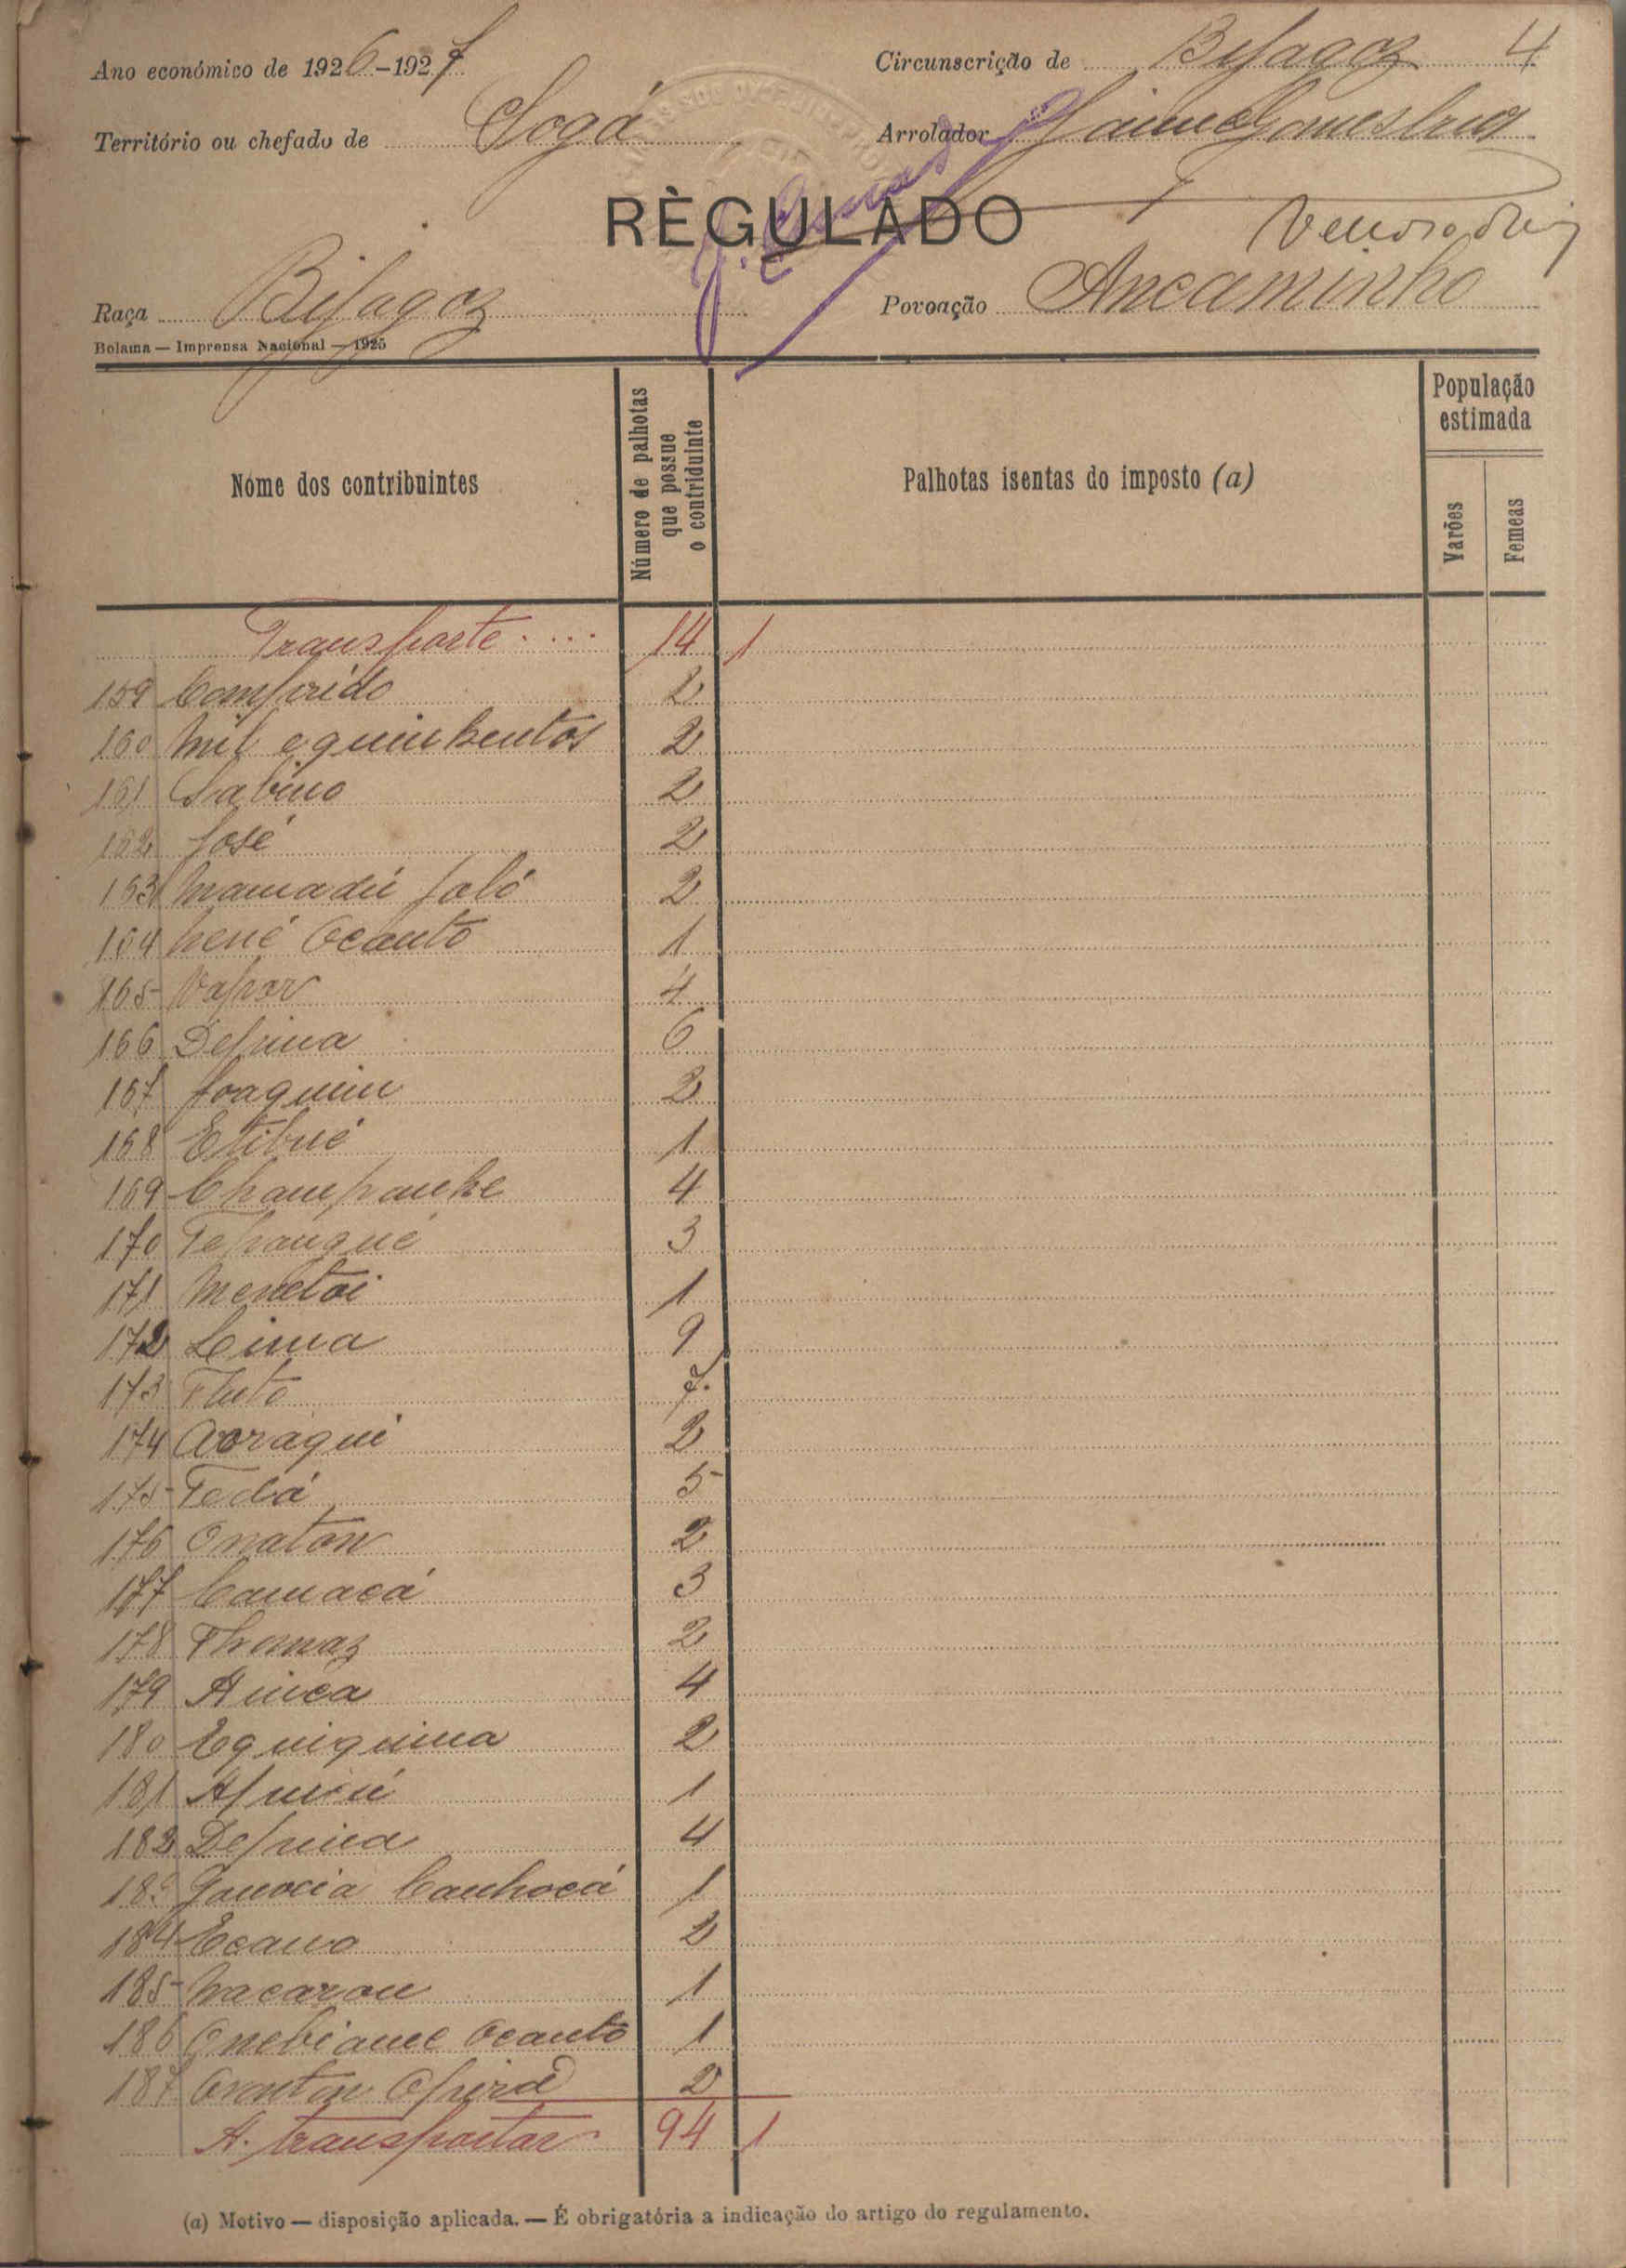 Ano económico de 1926-1927.
Circunscrição de Bijagoz 4
Território ou chefado de Sogá
Arrolador Jaime Gomes
RÈGULADO
Raça Bijagoz
Povoação Ancaminho
Bolama — Imprensa Nacional — 1925
Nome dos contribuintes
Número de palhotas que possue o contriduinte
Palhotas isentas do imposto (a)
População estimada
Varões
Femeas
Transporte.... 14 1
159 Comprido 2
160 Mil e quinhentos 2
161 Sabino 2
162 José 2
163 Mamadú Jaló 2
164 Nené Ocanto 1
165 Vapor 4
166 Depina 6
167 Joaquim 2
168 Etibué 1
169 Champanhe 4
170 Tepangué 3
171 Menetoi 1
172 Lima 9
173 7.
174 Acraqui 2
175 Tedá 5
176 Onaton 2
177 Camacá 3
178 Thomaz 2
179 Ainca 4
180 Equiquina 2
181 1
182 Depina 4
183 Canhocá 1
184 Ecano 2
185 Macarou 1
186 Onebiane Ocanto 1
187 2
A. transportar 94 1
(a) Motivo — disposição aplicada. — É obrigatória a indicação do artigo do regulamento.